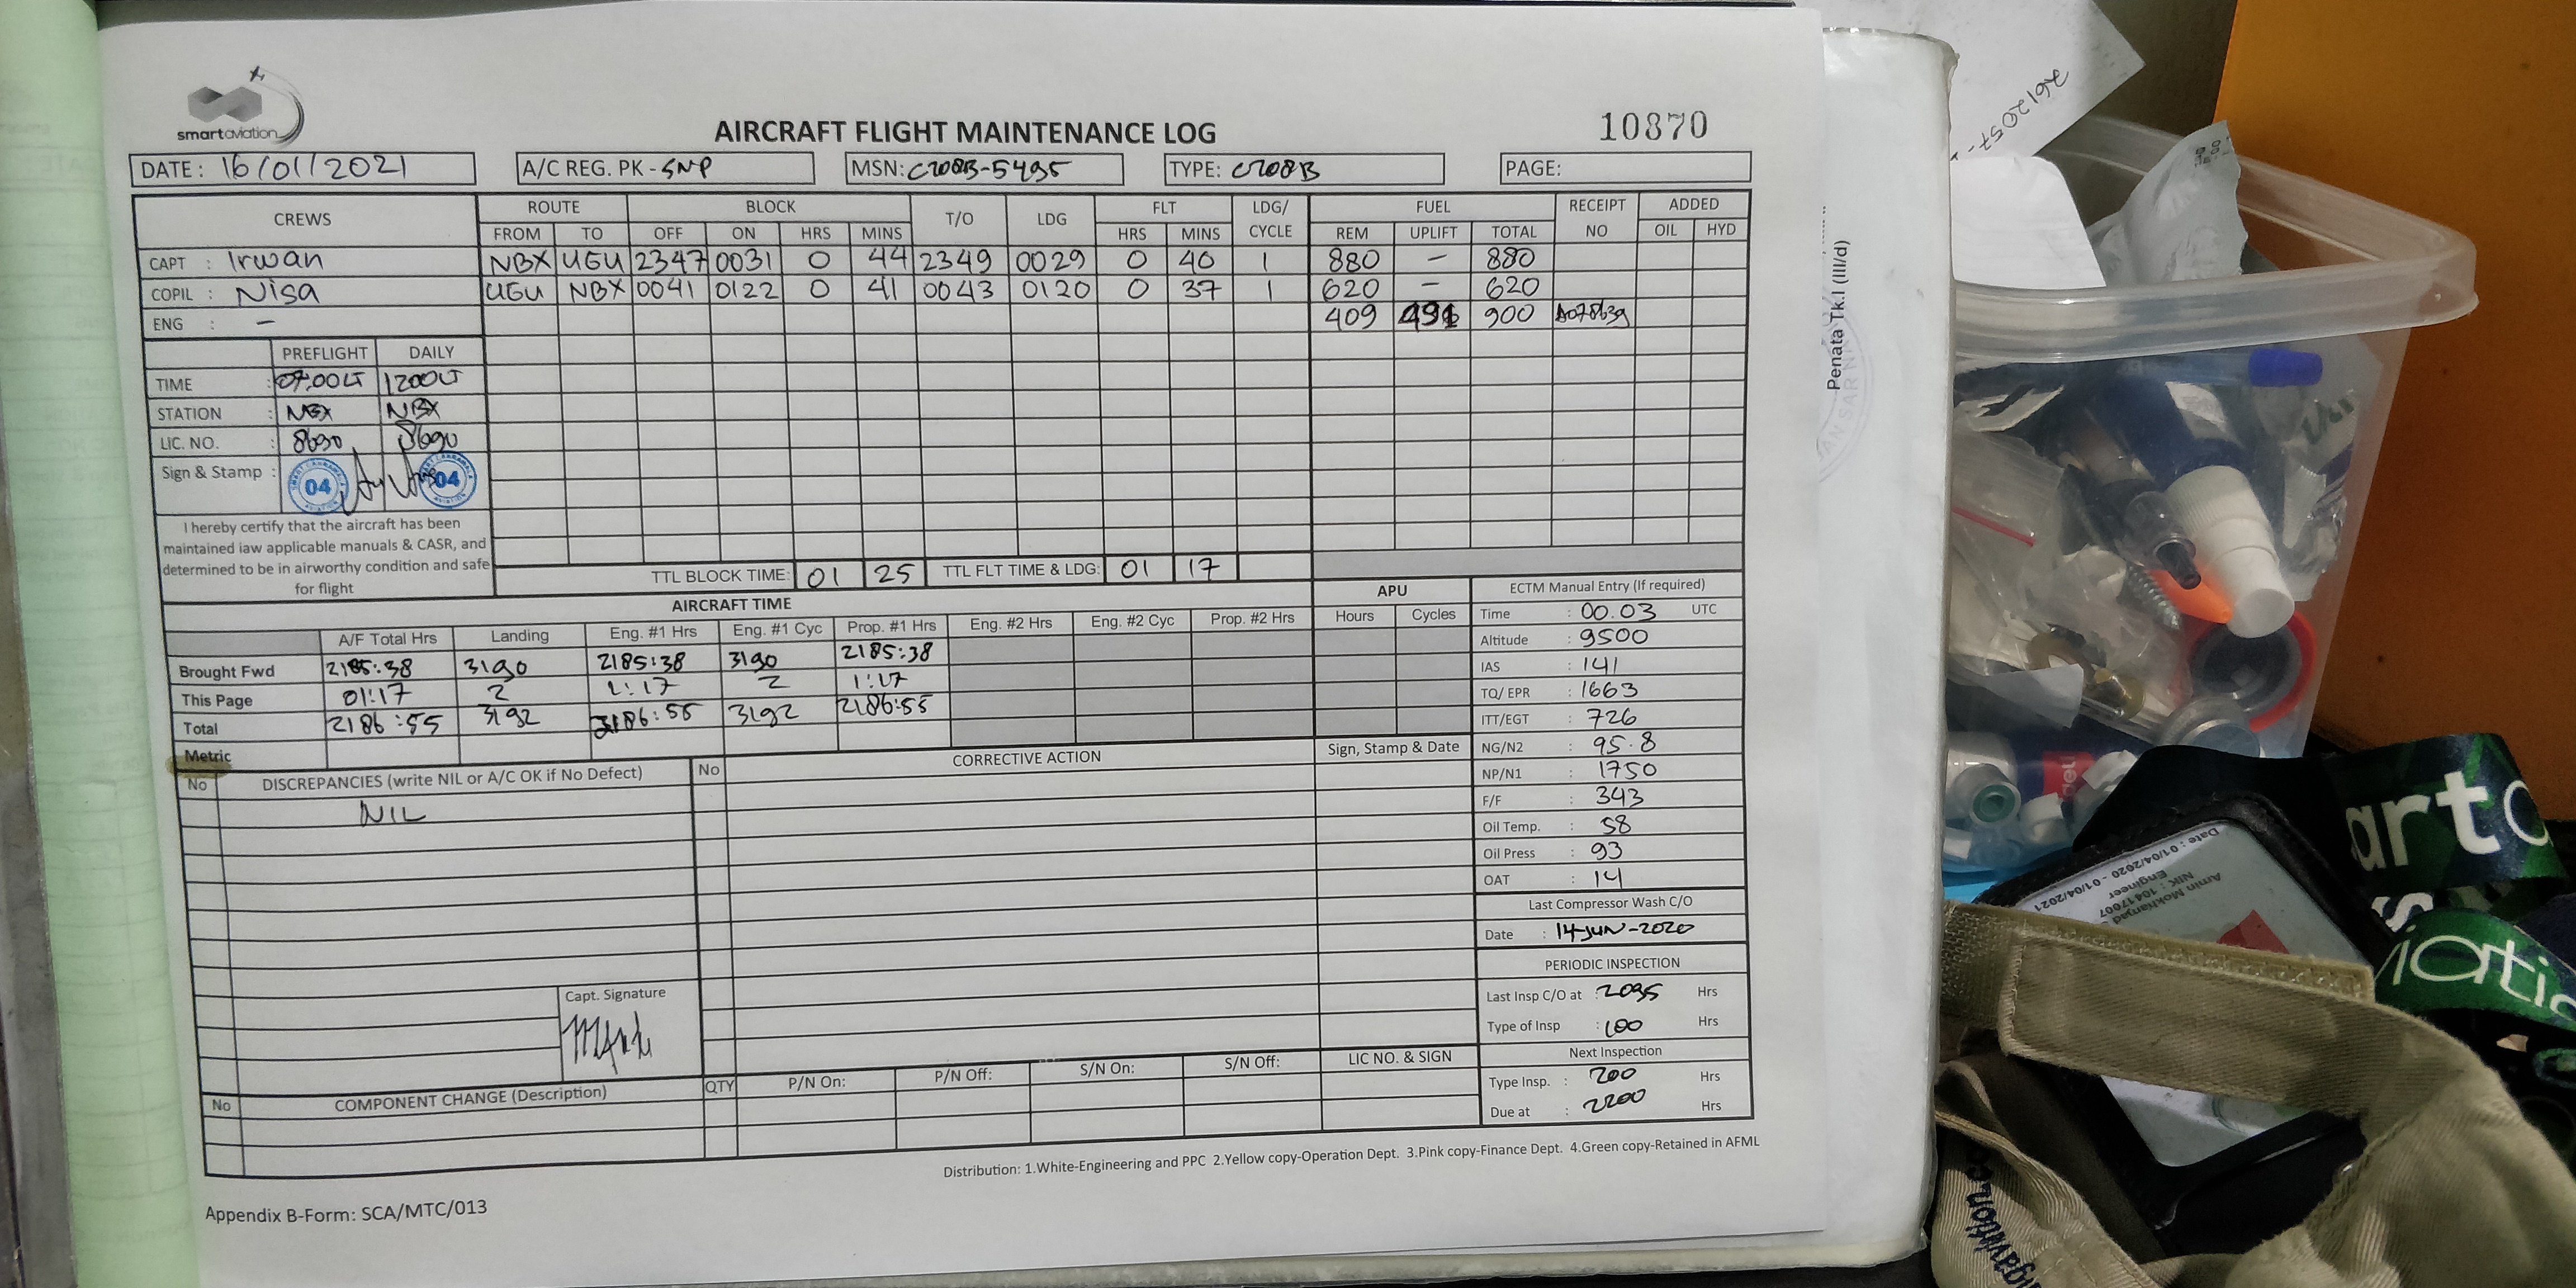 smartaviation
AIRCRAFT FLIGHT MAINTENANCE LOG
10870
DATE: 16/01/2021
A/C REG. PK - SNP
MSN: C208B-5495
TYPE: C208B
PAGE:
CREWS ROUTE BLOCK T/O LDG FLT LDG/ CYCLE FUEL RECEIPT NO ADDED
FROM TO OFF ON HRS MINS HRS MINS REM UPLIFT TOTAL OIL HYD
CAPT : Irwan NBX UGU 2347 0031 0 44 2349 0029 0 40 1 880 - 880
COPIL : Nisa UGU NBX 0041 0122 0 41 0043 0120 0 37 1 620 - 620
ENG : - 409 491 900
PREFLIGHT DAILY
TIME : 07.00LT 1200LT
STATION : NBX NBX
LIC. NO. : 8690 8690
Sign & Stamp : 04 04
I hereby certify that the aircraft has been
maintained iaw applicable manuals & CASR, and
determined to be in airworthy condition and safe
for flight
TTL BLOCK TIME: 01 25 TTL FLT TIME & LDG: 01 17
AIRCRAFT TIME APU
A/F Total Hrs Landing Eng. #1 Hrs Eng. #1 Cyc Prop. #1 Hrs Eng. #2 Hrs Eng. #2 Cyc Prop. #2 Hrs Hours Cycles
Brought Fwd 2185:38 3190 2185:38 3190 2185:38
This Page 01:17 2 1:17 2 1:17
Total 2186:55 3192 2186:55 3192 2186:55
Metric
ECTM Manual Entry (If required)
Time : 00.03 UTC
Altitude : 9500
IAS : 141
TQ/ EPR : 1663
ITT/EGT : 726
NG/N2 : 95.8
NP/N1 : 1750
F/F : 343
Oil Temp. : 58
Oil Press : 93
OAT : 14
Last Compressor Wash C/O
Date : 14-JUN-2020
PERIODIC INSPECTION
Last Insp C/O at : 2095 Hrs
Type of Insp : 100 Hrs
Next Inspection
Type Insp. : 200 Hrs
Due at : 2200 Hrs
No DISCREPANCIES (write NIL or A/C OK if No Defect) No CORRECTIVE ACTION Sign, Stamp & Date
NIL
Capt. Signature
No COMPONENT CHANGE (Description) QTY P/N On: P/N Off: S/N On: S/N Off: LIC NO. & SIGN
Distribution: 1.White-Engineering and PPC 2.Yellow copy-Operation Dept. 3.Pink copy-Finance Dept. 4.Green copy-Retained in AFML
Appendix B-Form: SCA/MTC/013
Penata Tk.I (III/d)
Engineer
NIK : 10417007
Date : 01/04/2020 - 01/04/2021